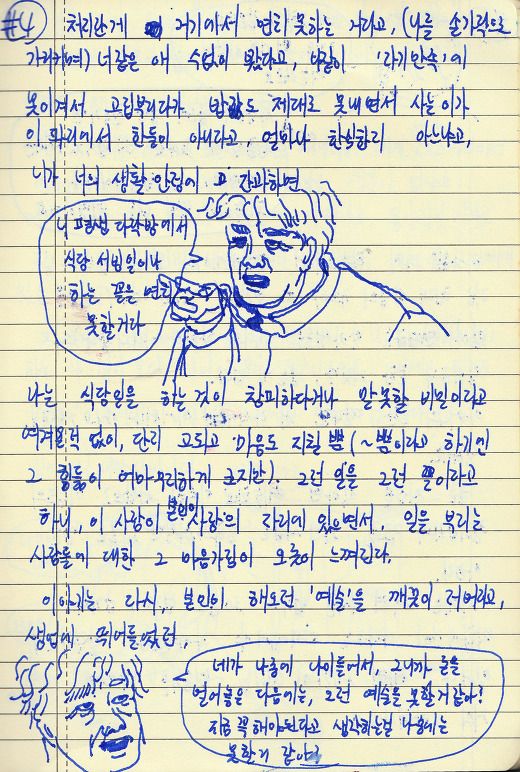 #4
처리란게 거기에서 면치 못하는 거라고, (나를 손가락으로
가리키며) 너같은 애 수없이 봤다고, 이같이 '자기만족'에
못이겨서 고집부리다가 밥값도 제대로 못내면서 사는이가
이 바닥에서 한둘이 아니라고, 얼마나 한심한지 아느냐고,
니가 너의 생활 안정에 간과하면
니 평생 다락방에서
식당 서빙일이나
하는 꼴을 면치
못할거라
나는 식당일을 하는 것이 창피하다거나 말못할 비밀이라고
여겨본적 없이, 단지 고되고 마음도 지칠 뿐 (~뿐이라고 하기엔
그 힘듦이 어마무시하게 크지만). 그런 일을 그런 꼴이라고
하니, 이 사람이 본인이 사람의 자리에 있으면서, 일을 부리는
사람들에 대한 그 마음가짐이 오롯이 느껴진다.
이야기는 다시, 본인이 해오던 '예술'을 깨끗이 저버리고,
생업에 뛰어들었던,
네가 나중에 나이들어서, 그니까 돈을
벌어놓은 다음에는, 그런 예술을 못할거같아?
지금 꼭 해야된다고 생각하는걸 나중에는
못할거 같아?